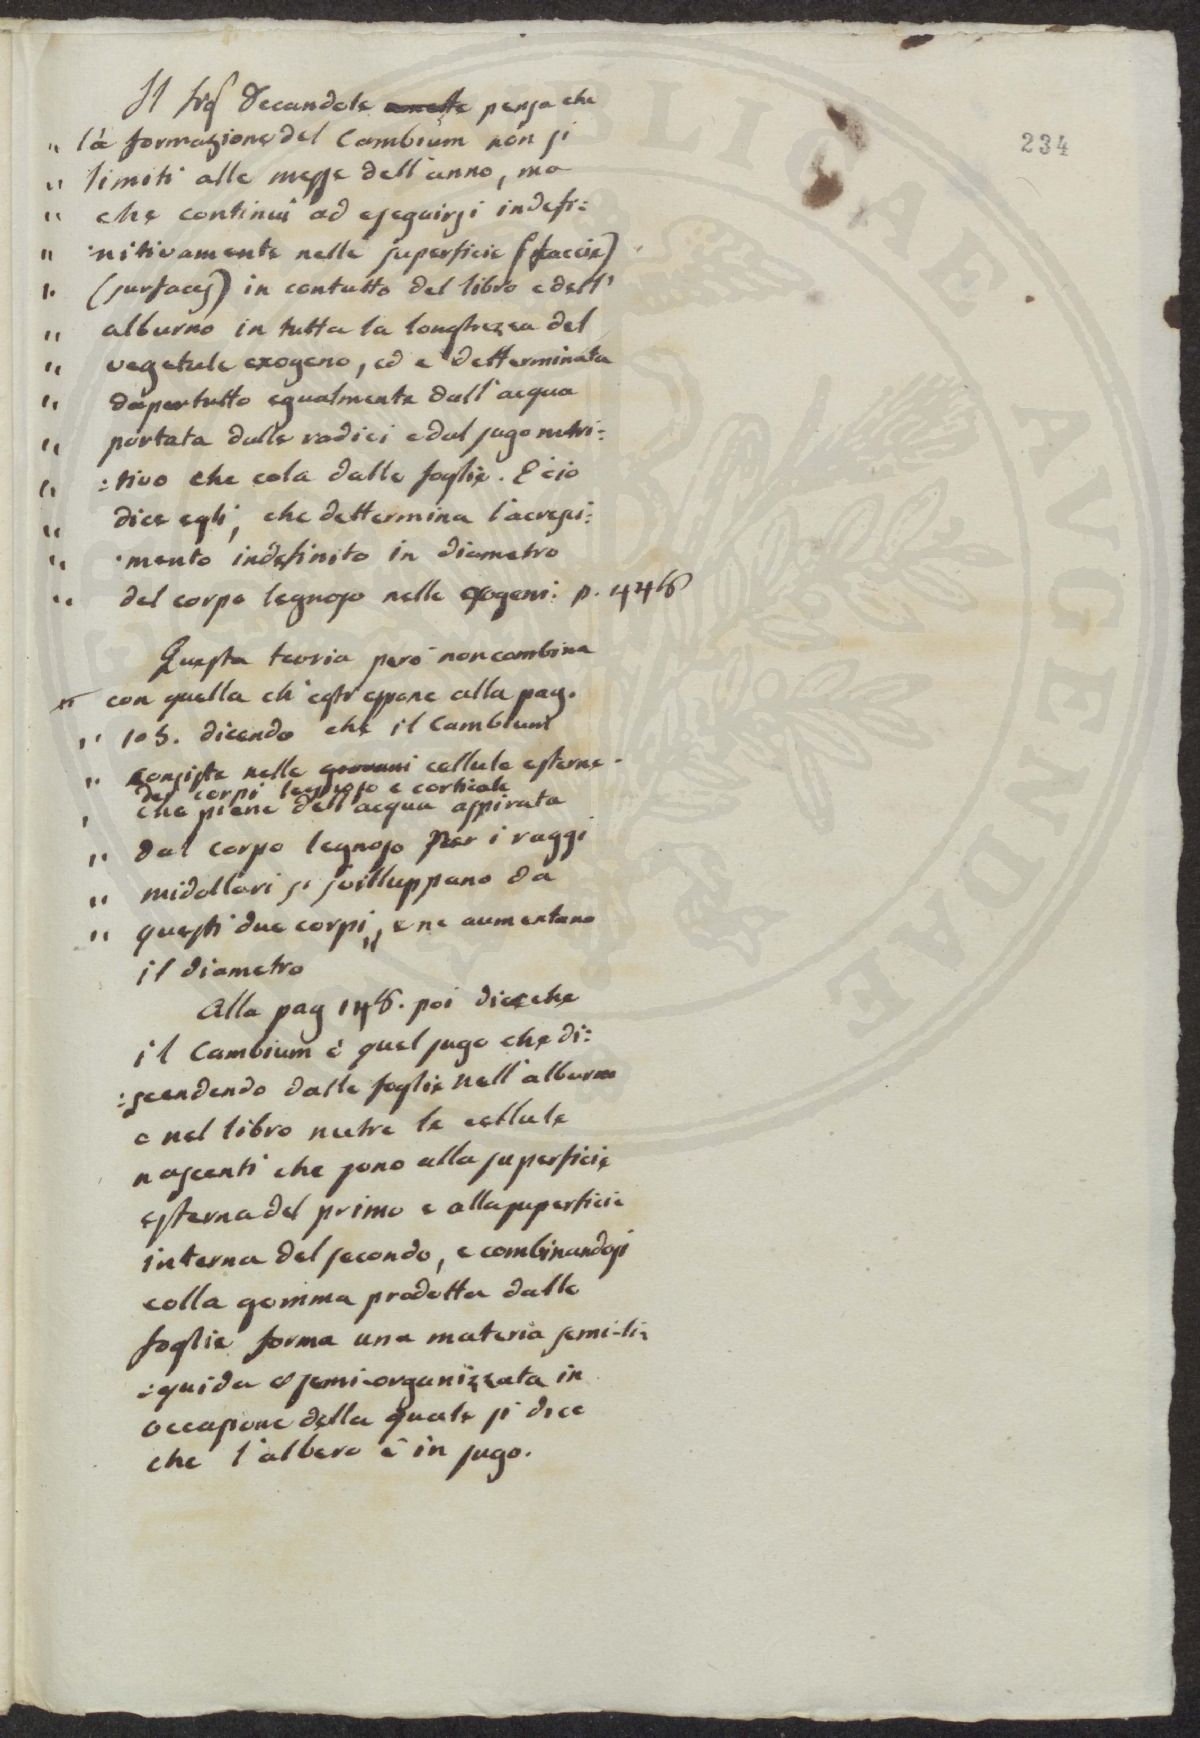 234
Il Sig Decandole penza che
" la formazione del Cambium non si
" limiti alle messe dell'anno, ma
" che continui ad eseguirsi indefi:
" nitivamente nelle superficie (faccie)
" (surfaces) in contutto del libro e dell'
" alburno in tutta la longhezza del
" vegetale exogeno, ed e detterminata
" dapertutto egualmente dall'acqua
" portata dalle radici e dal sugo nutri:
" :tivo che cola dalle foglie. E ciò
" dice egli, che dettermina l'acresi:
" mento indefinito in diametro
" del corpo legnoso nelle exogeni. p. 446
Questa teoria però non combina
" con quella ch'egli espone alla pag.
" 105. dicendo che il Cambium
" consiste nelle giovani cellule esterne
dei corpi legnoso e corticale
" che piene dell'acqua aspirata
" dal corpo legnoso per i raggi
" midollari si sviluppano da
" questi due corpi,, e ne aumentano
il diametro
Alla pag 146. poi dice che
il Cambium è quel sugo che di:
:scendendo dalle foglie nell'alburno
e nel libro nutre le cellule
nascenti che sono alla superficie
esterna del primo e alla superficie
interna del secondo, e combinandosi
colla gomma prodotta dalle
foglie forma una materia semi-li:
:quida e semi-organizzata in
occasione della quale si dice
che l'albero è in sugo.